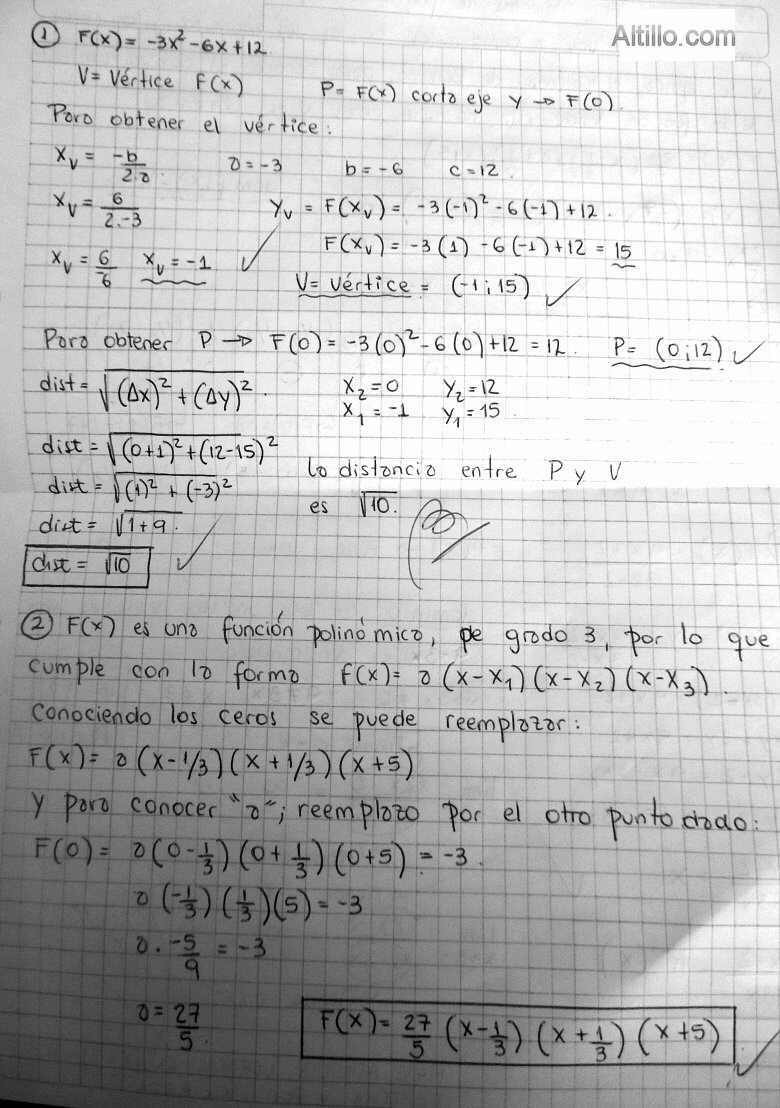 Altillo.com
① F(x) = -3x² - 6x + 12
V = Vértice F(x) P = F(x) corta eje y → F(0).
Para obtener el vértice:
x_v = -b/2.a a = -3 b = -6 c = 12
x_v = 6/2.-3 y_v = F(x_v) = -3(-1)² - 6(-1) + 12.
F(x_v) = -3(1) - 6(-1) + 12 = 15
x_v = 6/-6 x_v = -1 V = vértice = (-1;15)
Para obtener P → F(0) = -3(0)² - 6(0) + 12 = 12. P = (0;12)
dist = √(Δx)² + (Δy)². x₂ = 0 y₂ = 12
x₁ = -1 y₁ = 15
dist = √(0+1)² + (12-15)²
dist = √(1)² + (-3)²
la distancia entre P y V
es √10.
dist = √1+9.
dist = √10
② F(x) es una función polinómica, de grado 3, por lo que
cumple con la forma f(x) = a(x-x₁)(x-x₂)(x-x₃).
Conociendo los ceros se puede reemplazar:
F(x) = a(x-1/3)(x+1/3)(x+5)
Y para conocer "a"; reemplazo por el otro punto dado:
F(0) = a(0-1/3)(0+1/3)(0+5) = -3.
a(-1/3)(1/3)(5) = -3
a. -5/9 = -3
a = 27/5. F(x) = 27/5 (x-1/3)(x+1/3)(x+5)